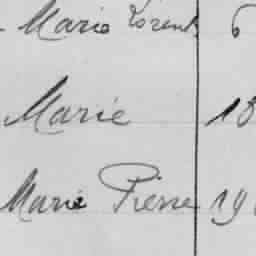 Marie Lorent 6
Marie 18
Marie Pierre 19